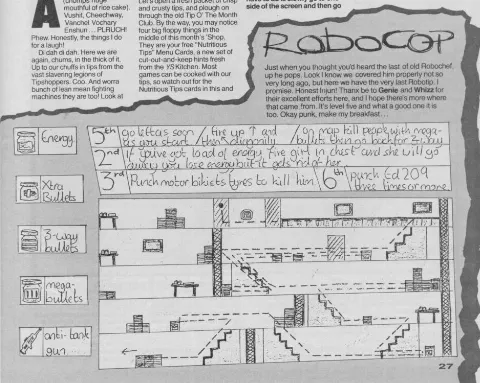 side of the screen and then go
A
(chomps huge
mouthful of rice cake).
Vushit, Cheechway,
Vanchot Vochary
Enshurr ... PLRUCH!
Phew. Honestly, the things I do
for a laugh!
Di dah di dah. Here we are
again, chums, in the thick of it.
Up to our chuffs in tips from the
vast slavering legions of
Tipshoppers. Coo. And worra
bunch of lean mean fighting
machines they are too! Look at
Let's open a fresh packet of crisp
and crusty tips, and plough on
through the old Tip O' The Month
Club. By the way, you may notice
four big floppy things in the
middle of this month's 'Shop.
They are your free "Nutritious
Tips" Menu Cards, a new set of
cut-out-and-keep hints fresh
from the YS Kitchen. Most
games can be cooked with our
tips, so watch out for the
Nutritious Tips cards in this and
ROBOCOP
Just when you thought you'd heard the last of old Robochef,
up he pops. Look I know we covered him properly not so
very long ago, but here we have the very last Robotip. I
promise. Honest Injun! Thanx be to Genie and Whizz for
their excellent efforts here, and I hope there's more where
that came from. It's level five and what a good one it is
too. Okay punk, make my breakfast...
Energy
Xtra
Bullets
3-way
bullets
mega-
bullets
anti-tank
gun...
5th go left as soon as you start / fire up ↑ and then diagonally / on map kill people with mega-bullets then go back for 3 way
2nd if you've got load of energy fire girl in chest and she will go
away you lose energy but it gets rid of her
3rd Punch motor bikiets tyres to kill him
6th punch Ed 209
three times or more
27